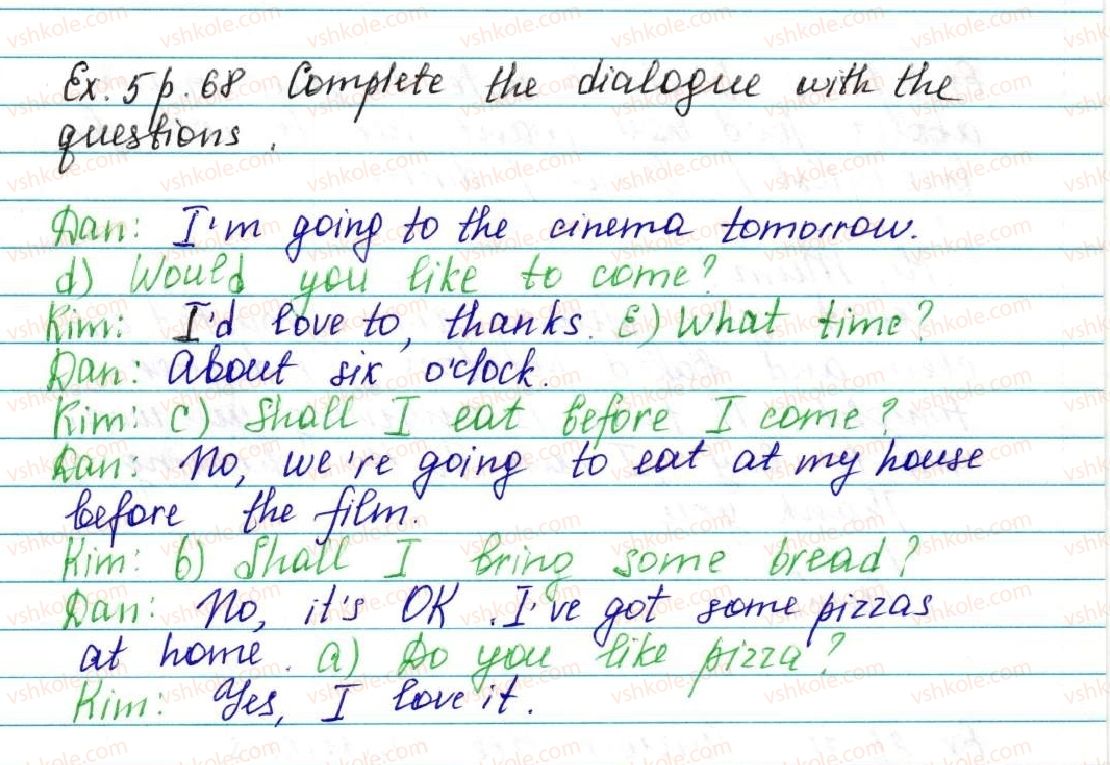 Ex. 5 p. 68 Complete the dialogue with the
questions.
Dan: I'm going to the cinema tomorrow.
d) Would you like to come?
Kim: I'd love to, thanks. E) What time?
Dan: About six o'clock.
Kim: c) Shall I eat before I come?
Dan: No, we're going to eat at my house
before the film.
Kim: b) Shall I bring some bread?
Dan: No, it's OK. I've got some pizzas
at home. a) Do you like pizza?
Kim: Yes, I love it.
vshkole.com